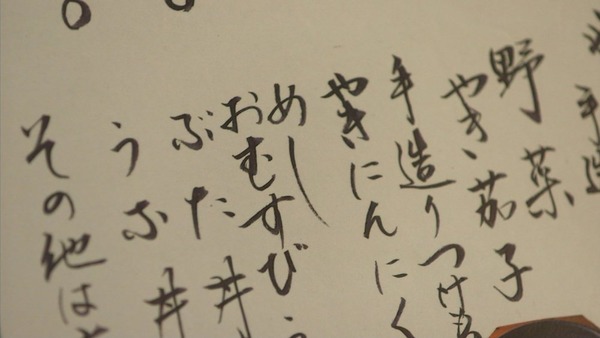 手造
野菜
やき茄子
手造りつけも
やきにんにく
めし
おむすび
ぶた丼
うな丼
その他は